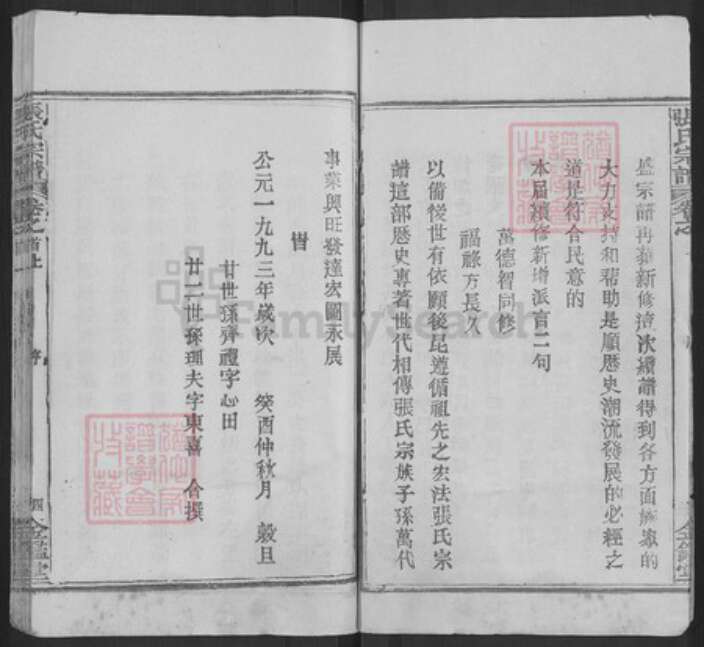 盛宗譜再華新修這次續譜得到各方面
大力支持和幫助是順歷史潮流發展的必經之
道是符合民意的
本届續修新增派言二句
萬德智同修
福祿方長久
以備後世有依願後昆遵循祖先之宏法張氏宗
譜這部歷史專著世代相傳張氏宗族子孫萬代
事業興旺發達宏圖永展
旹
公元一九九三年歲次 癸酉仲秋月 穀旦
廿世孫齊禮字心田
廿二世孫理夫字東嘉 合撰
張氏宗譜
卷之首上
序
四
金鑑堂
張氏宗譜
金鑑堂
FamilySearch